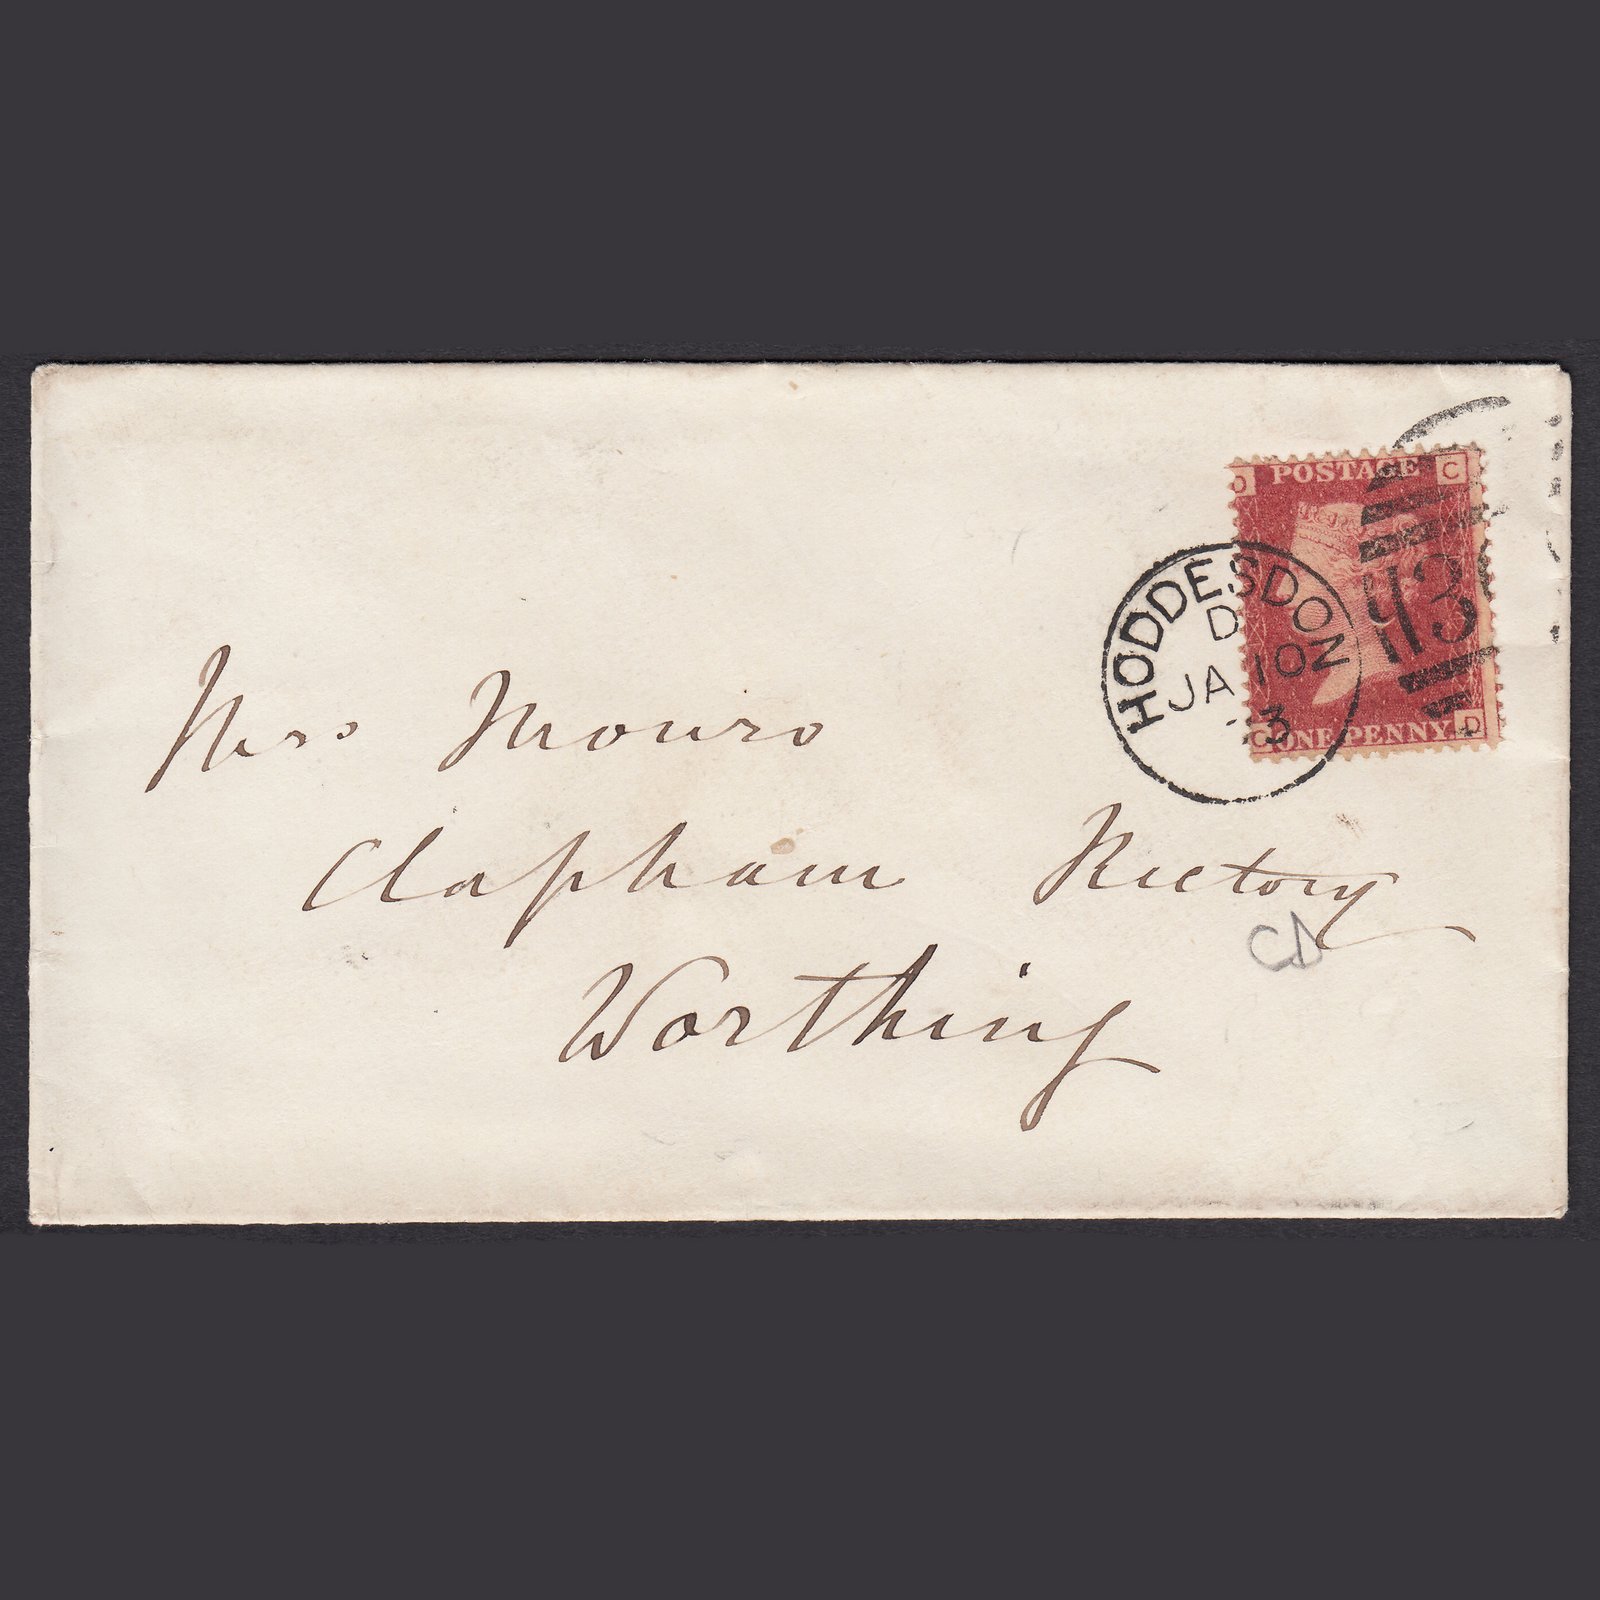 D POSTAGE C
HODDESDON
D
JA 10
73
H39
C ONE PENNY D
Mrs Monro
Clapham Rectory
CD
Worthing